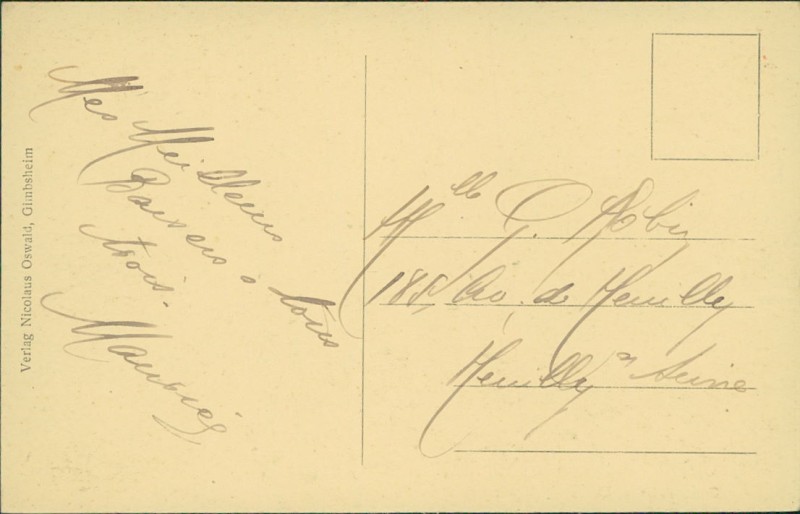 Verlag Nicolaus Oswald, Gimbsheim
Mes Meilleurs
Baisers à tous
trois.
Maurice
Mlle G. Robin
185 Av. de Neuilly
Neuilly s/ Seine